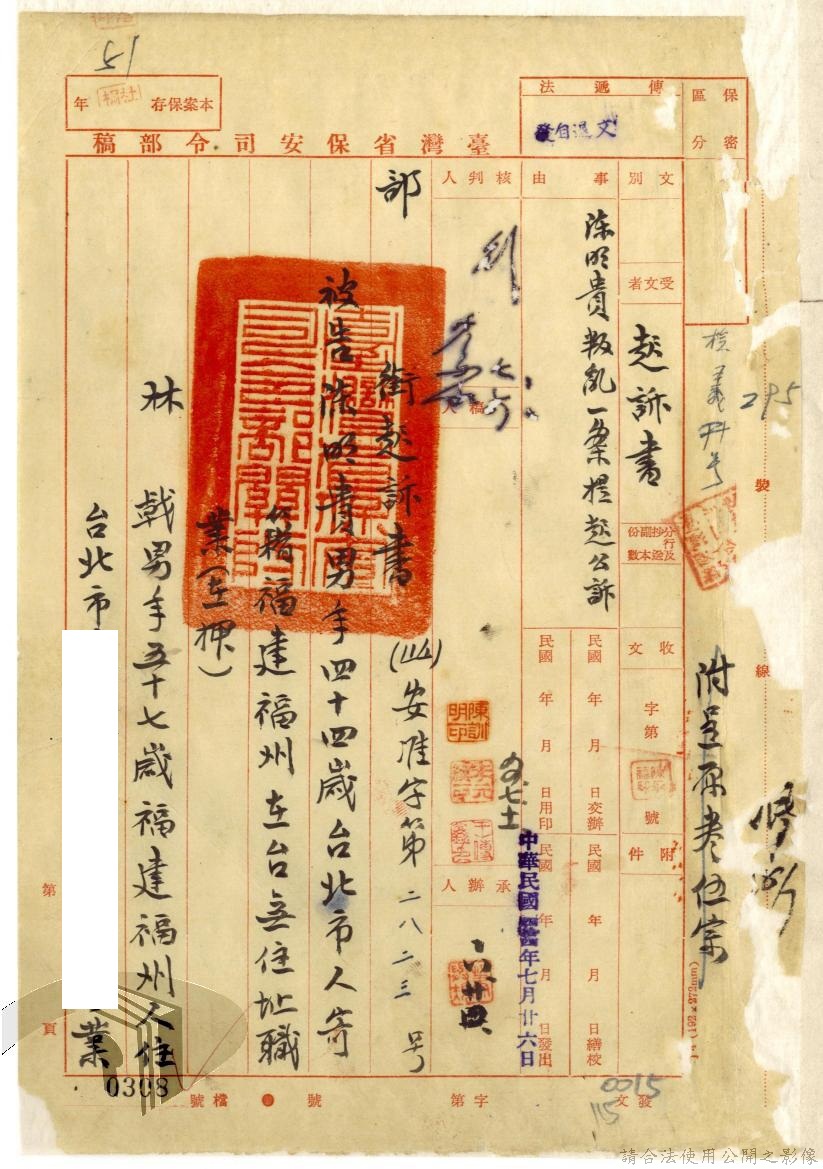 保密
區分
傳遞法
文退自發
本案保存 年
51
臺灣省保安司令部稿
文別
起訴書
受文者
事由
陳明貴叛亂一案提起公訴
核判人
分行及抄送副本份數
收文 字第 號
附件
附呈原卷伍宗
民國 年 月 日交辦
民國 年 月 日用印
民國 年 月 日繕校
民國 年 月 日發出
中華民國 年七月廿六日
承辦人
陳訓明印
295
裝
線
部銜起訴書
安准字第二八二三號
被告陳明貴男年四十四歲台北市人寄
籍福建福州在台無住址職
業(在押)
林 戟男年五十七歲福建福州人住
台北市
業
第 頁
0308
檔號
號
字第
發文
0015
115
請合法使用公開之影像